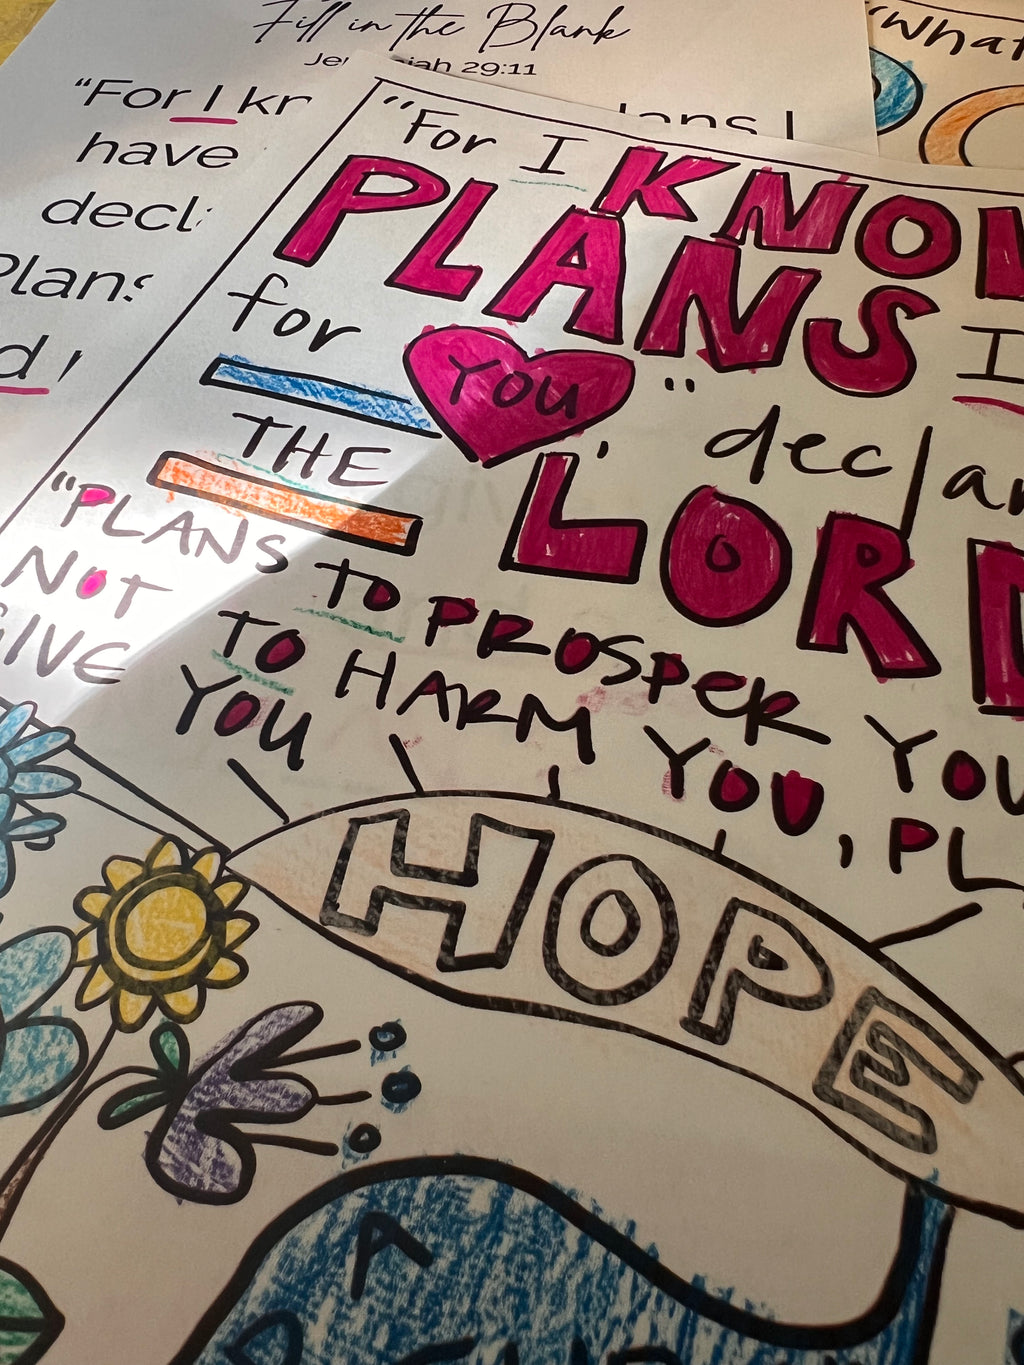 Fill in the Blank
Jer iah 29:11
"For I kr
have
decl
Plans
d
lans I
"What
"For I KNOW
PLANS I
for YOU," declar
THE LORD
"PLANS TO PROSPER YOU
NOT TO HARM YOU, PL
GIVE YOU
HOPE
A